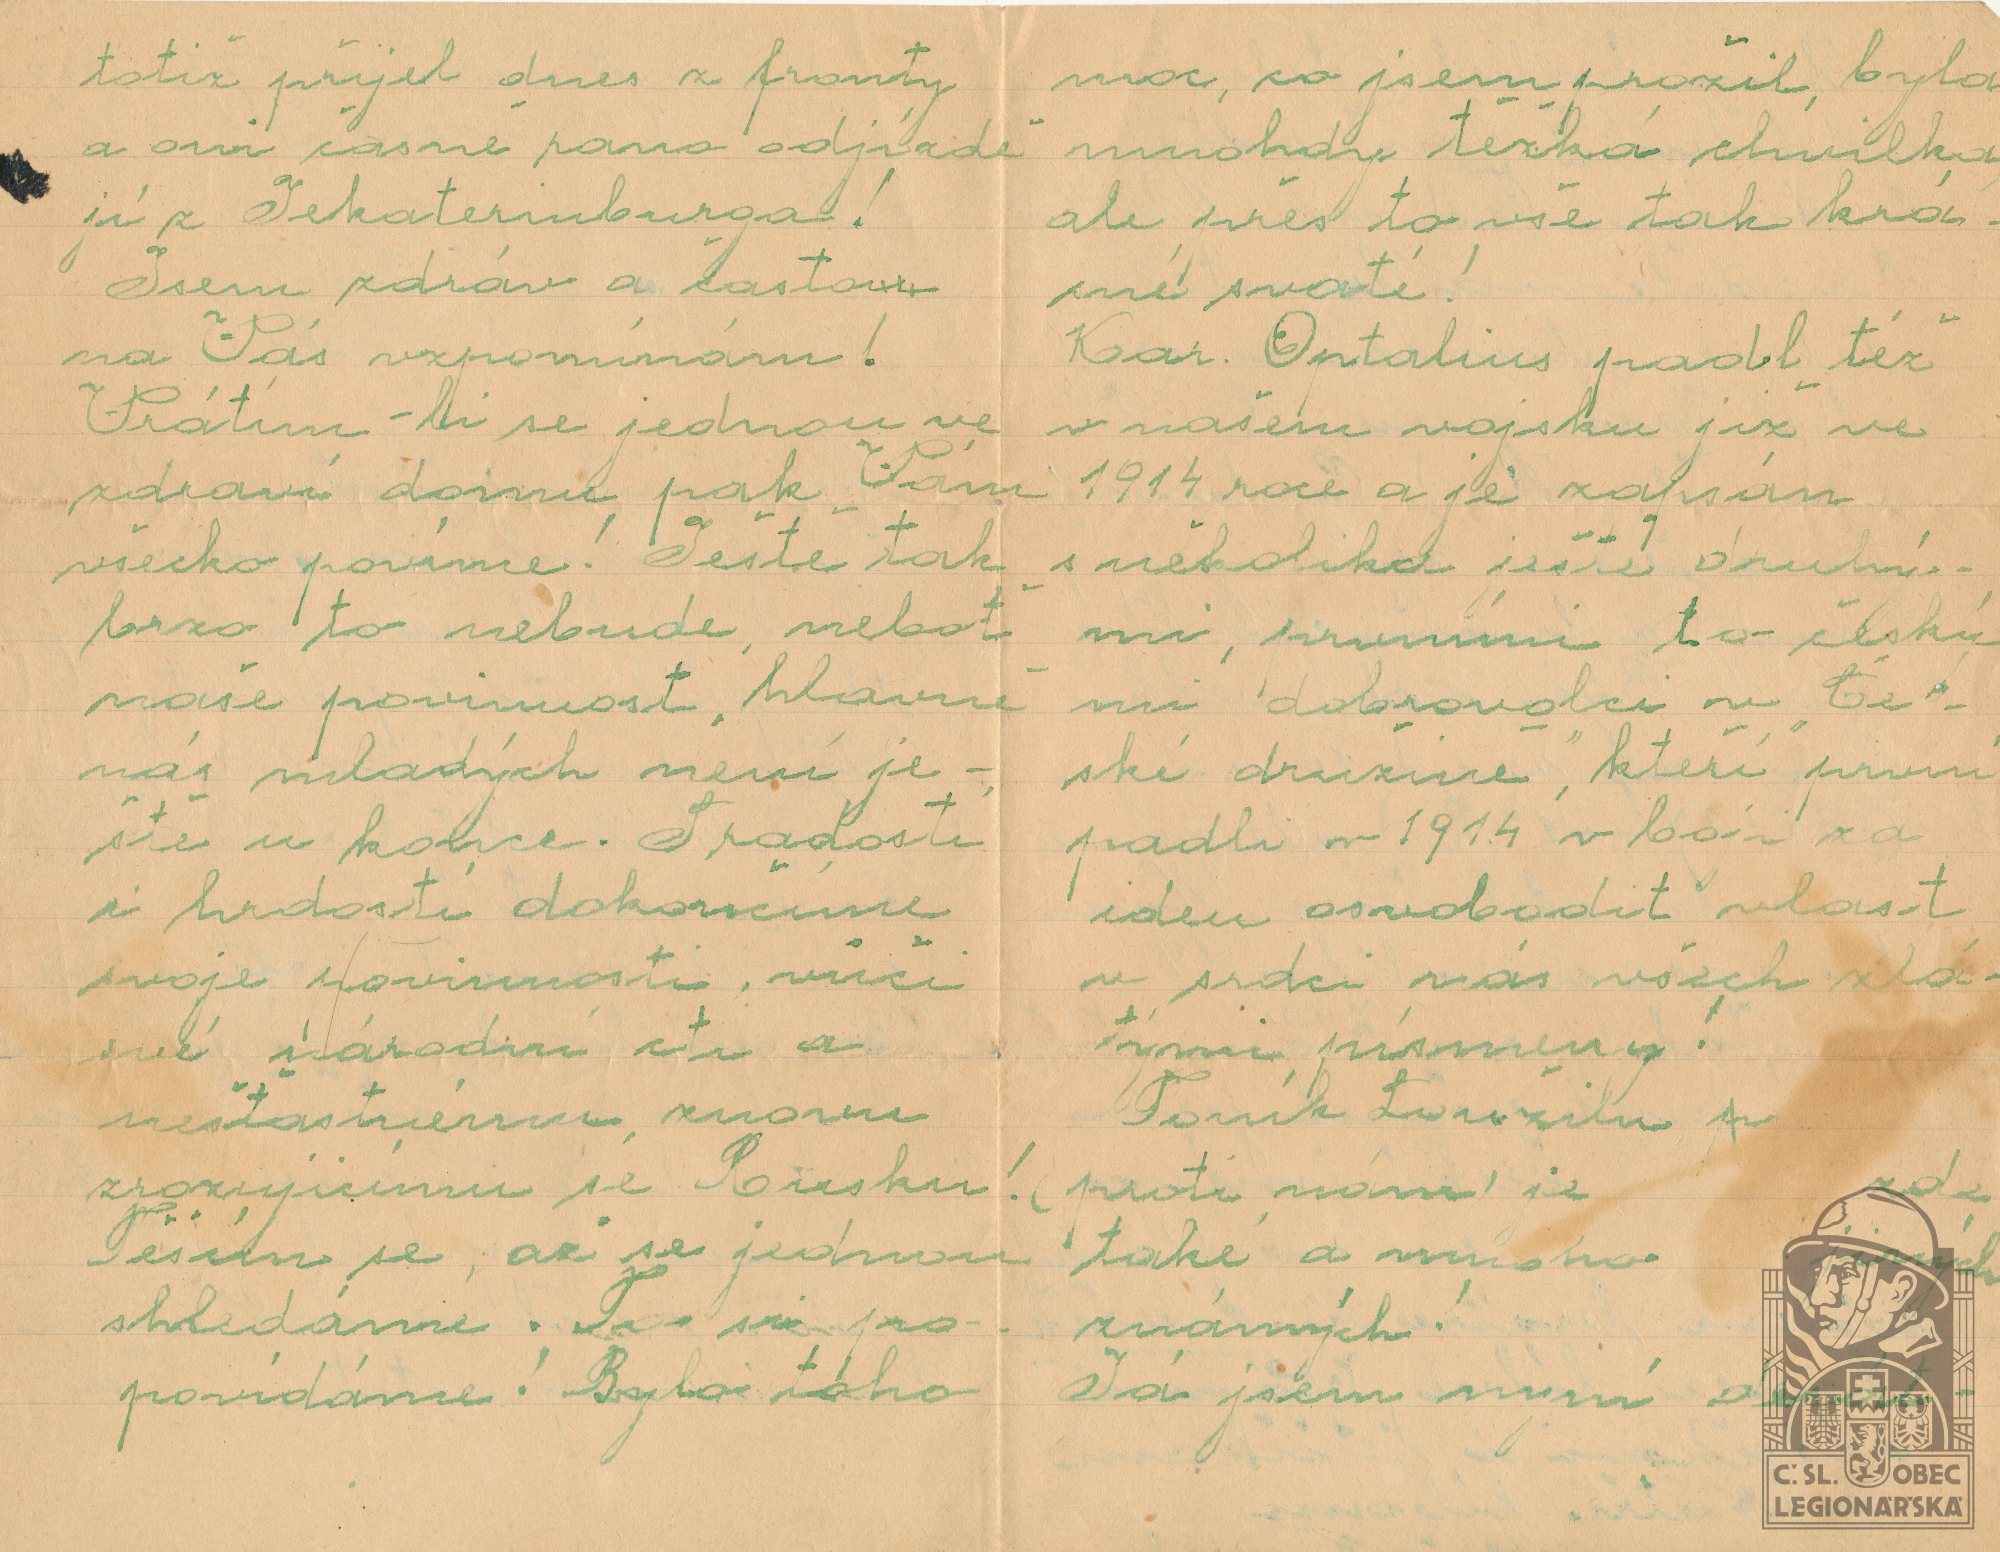 totiž přijel dnes z fronty
a oni časně ráno odjíždě
jí z Jekaterinburga!
Jsem zdráv a často
na Vás vzpomínám!
Vrátím-li se jednou ve
zdraví domu, pak Vám
všecko povíme! Ještě tak
brzo to nebude, neboť
naše povinnost, hlavně
nás mladých není je-
ště u konce. S radostí
i hrdostí dokončíme
svoje povinnosti, vůči
své národní cti a
nešťastnému, znovu
zrozujícímu se Rusku!
Těším se, až se jednou
shledáme. To si po-
povídáme! Bylo toho
moc, co jsem prožil, byla
mnohdy těžká chvilka
ale přes to vše tak krá-
sné, svaté!
Kar. Optalius padl též
v našem vojsku již ve
1914 roce a je zapsán
s několika ještě druhý-
mi, prvními to český
mi dobrovolci v "Če-
ské družině", kteří první
padli v 1914 v boji za
ideu osvobodit vlast
v srdci nás všech zla-
tými písmeny!
Toník
proti nám, je zde
také a mnoho jiných
známých!
Já jsem nyní
Č. SL. OBEC
LEGIONÁŘSKÁ